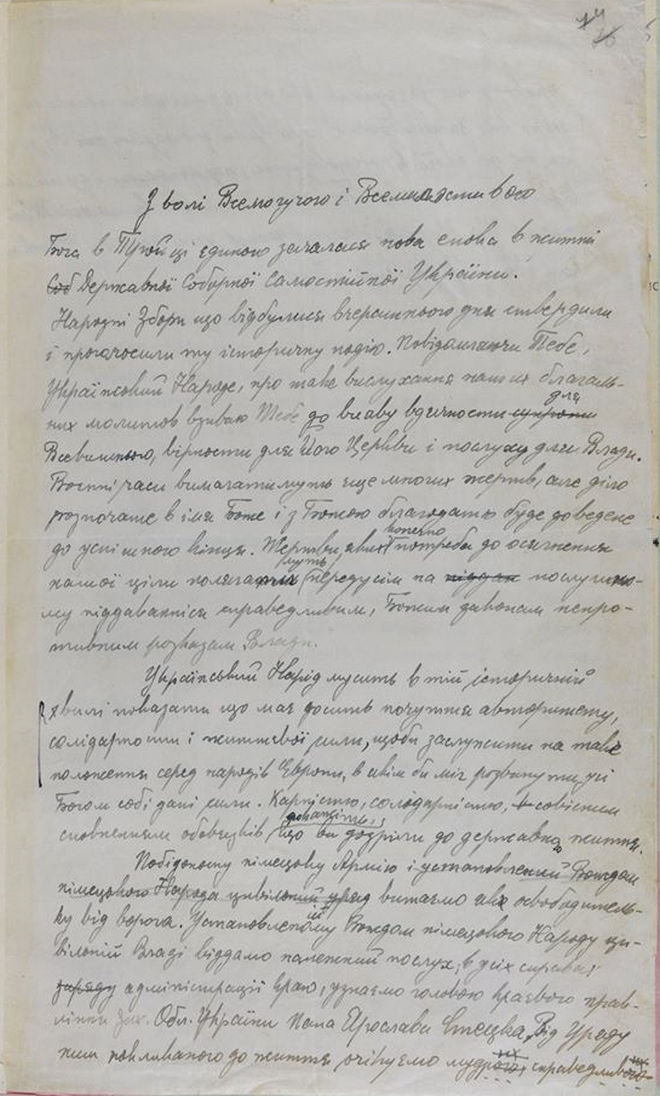 14
З волі Всемогучого і Всемилостивого
Бога в Тройці єдиного зачалася нова епоха в життю
Соб Державної Соборної Самостійної України.
Народні Збори що відбулися вчерашнього дня ствердили
і проголосили ту історичну подію. Повідомляючи Тебе,
Український Народе, про таке вислухання наших благаль-
для
них молитов взиваю Тебе до виаву вдячности
Всевишнього, вірности для Його Церкви і послуху для Влади.
Воєнні часи вимагатимуть ще многих жертв, але діло
розпочате в імя Боже і з Божою благодатю буде доведене
конечно
до успішного кінця. Жертви яких потреба до осягнення
муть
нашої ціли поляга передусім на піддан послушно-
му піддаванніся справедливим, Божим законам непро-
тивним розказам Влади.
Український Нарід мусить в тій історичній
хвилі показати що має досить почуття авторитету,
солідарности і життєвої сили, щоби заслужити на таке
положення серед народів Європи, в якім би міг розвинути усі
Богом собі дані сили. Карністю, солідарністю, совісним
докажіть,
сповненням обовязків що ви дозріли до державного життя.
Побідоносну німецьку Армію і установлений Вождом
німецького Народа цивільний уряд витаємо як освободитель-
ку від ворога. Установленому Вождом німецького Народу ци-
вільній Владі віддамо належний послух, в усіх справах
заряду адміністрації краю, узнаємо головою краєвого прав-
ління Зах. Обл. України Пана Ярослава Стецка, Від Уряду
ним покликаного до життя, очікуємо мудрого, справедливого